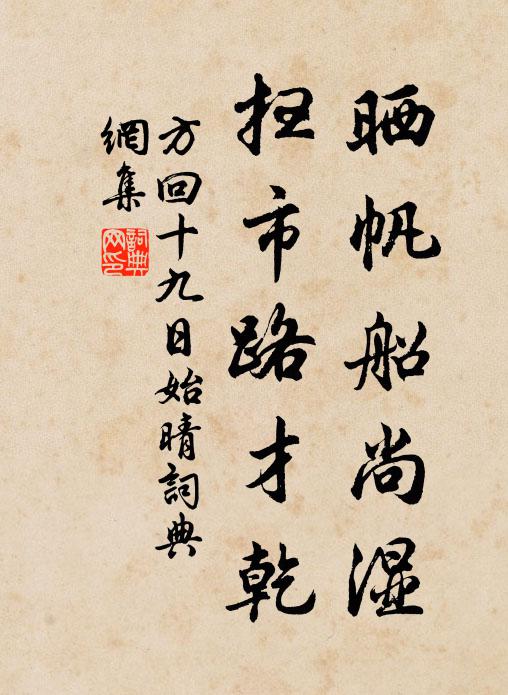 晒帆船尚湿
扫市路才乾
方回十九日始晴詞典
網集
詞典網印